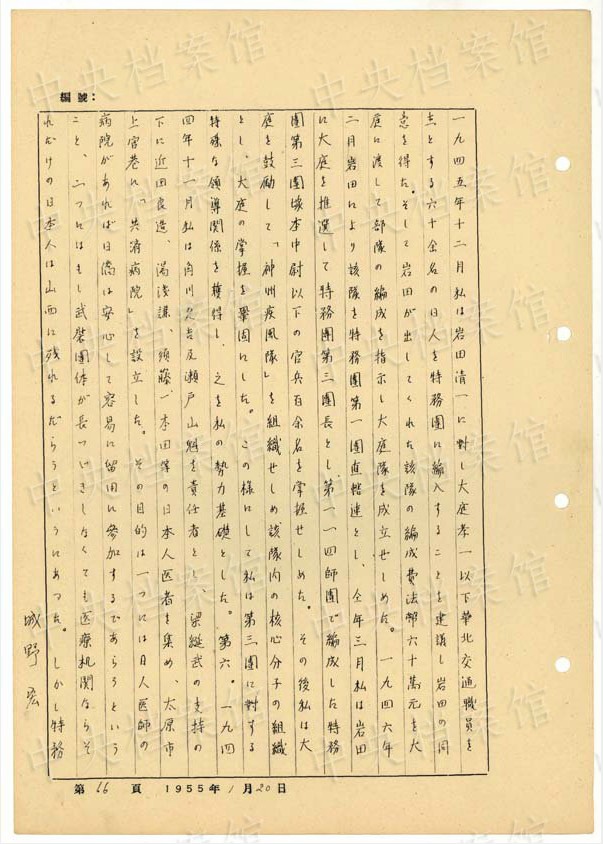 編號:
一九四五年十二月私は岩田清一に対し大庭孝一以下華北交通職員を
主とする六十余名の日人を特務團に編入することを建議し岩田の同
意を得た。そして岩田が出してくれた該隊の編成費法幣六十萬元を大
庭に渡して部隊の編成を指示し大庭隊を成立せしめた。一九四六年
二月岩田により該隊を特務團第一團直轄連とし、仝年三月私は岩田
に大庭を推選して特務團第三團長とし、第一一四師團で編成した特務
團第三團塚本中尉以下の官兵百余名を掌握せしめた。その後私は大
庭を鼓励して、「神州疾風隊」を組織せしめ該隊内の核心分子の組織
とし、大庭の掌握を鞏固にした。この様にして私は第三團に対する
特殊な領導関係を獲得し、之を私の勢力基礎とした。第六。一九四
四年十一月私は角川久吉及瀬戸山魁を責任者とし、梁綖武の支持の
下に近田良造、湯浅謙、須藤、本田等の日本人医者を集め、太原市
上官巷に「共済病院」を設立した。その目的は一つには日人医師の
病院があれば日僑は安心して容易に留用に参加するであらうという
こと、二つにはもし武装團体が長つゞきしなくても医療机関ならそ
れだけの日本人は山西に残れるだらうというにあつた。しかし特務
城野宏
第 66 頁 1955年 1月20日
中央档案馆